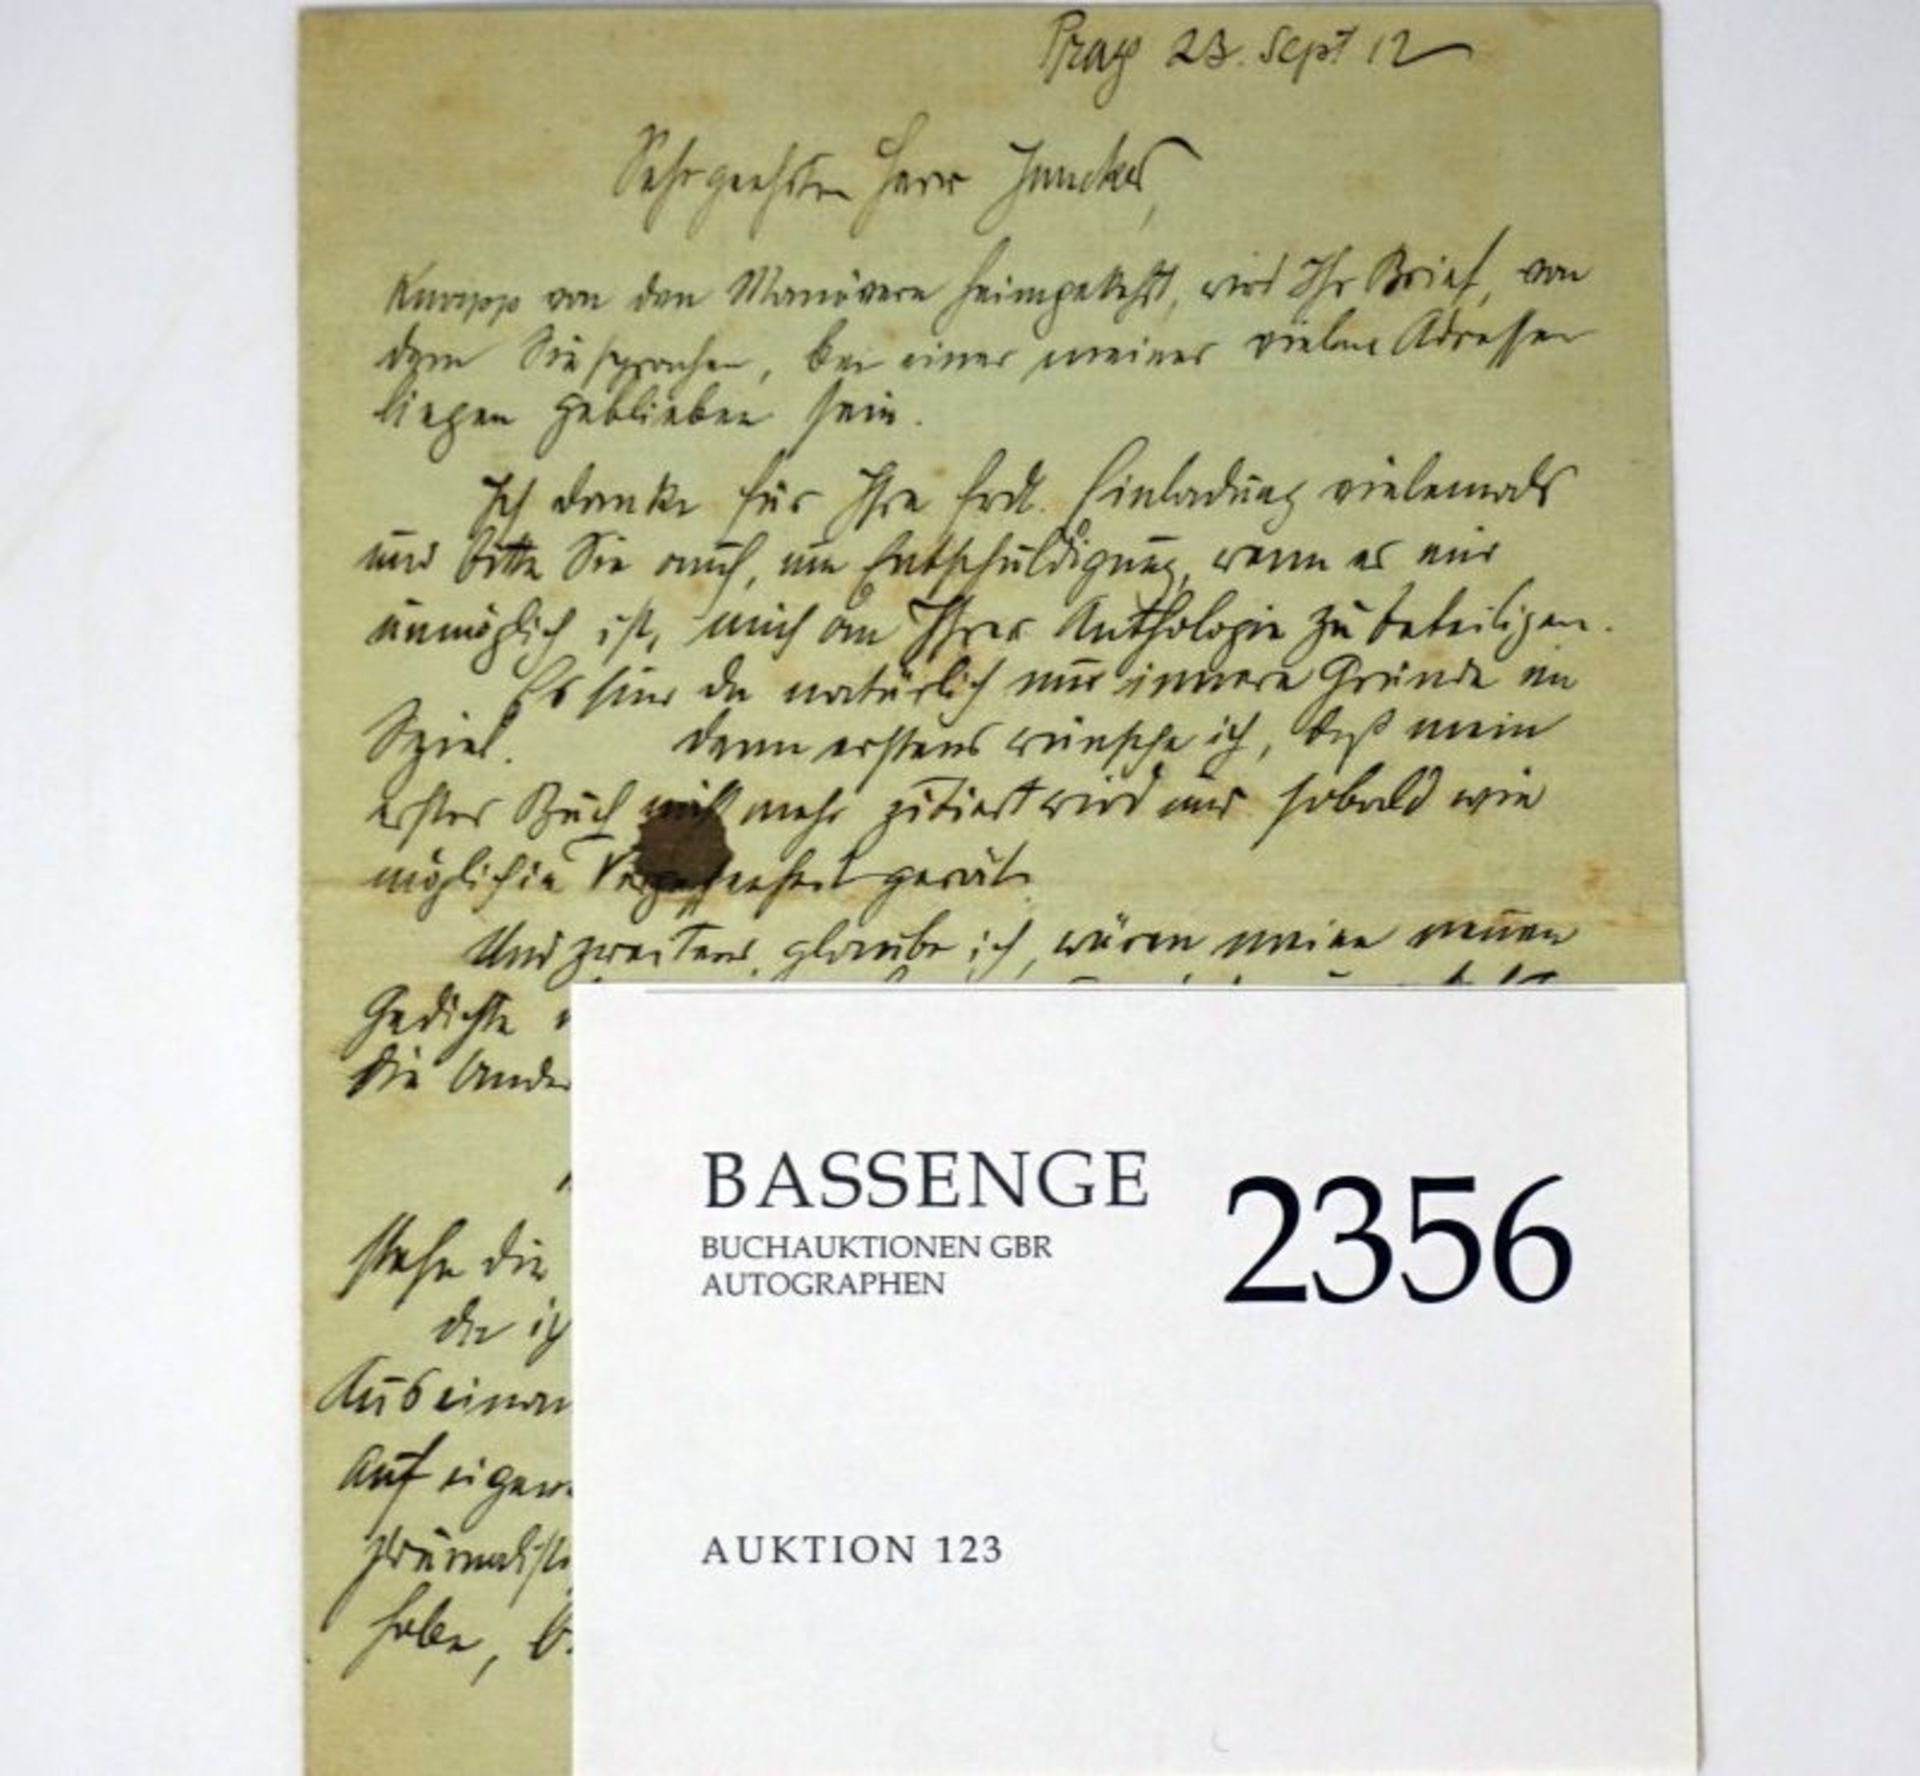 Prag 23. Sept 12
Sehr geehrter Herr Juncker,
Knapp von den Manövern heimgekehrt, wird Ihr Brief, von
dem Sie sprachen, bei einer meiner vielen Adressen
liegen geblieben sein.
Ich danke für Ihre frdl. Einladung vielemals
und bitte Sie auch, um Entschuldigung, wenn es mir
unmöglich ist, mich an Ihrer Anthologie zu beteiligen.
Es sind da natürlich nur innere Gründe im
Spiel. denn erstens wünsche ich, daß mein
erstes Buch nicht mehr zitiert wird und sobald wie
möglich in Vergessenheit gerät.
Und zweitens, glaube ich, wären meine neuen
Gedichte
die
stehe die
da ich
Auseinan
Auf eigene
habe,
BASSENGE
BUCHAUKTIONEN GBR
AUTOGRAPHEN
2356
AUKTION 123